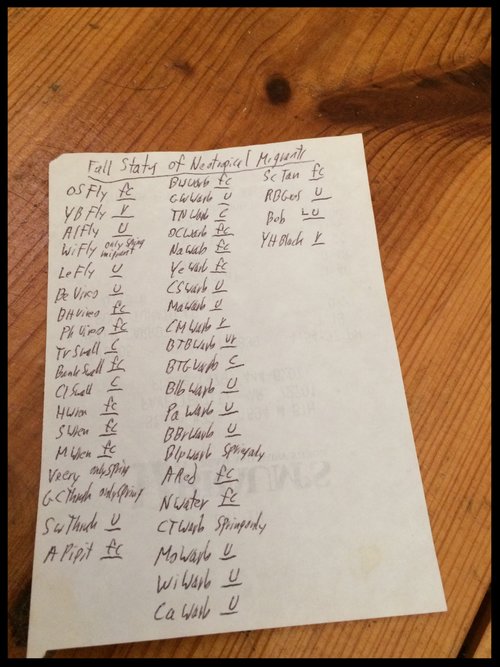 Fall Status of Neotropical Migrants
OSFly fc
YBFly r
AlFly U
WiFly only spring migrant
LeFly U
BeVireo U
BHVireo fc
PhVireo fc
TrSwall C
BankSwall fc
ClSwall C
HWren fc
SWren fc
MWren fc
Veery only Spring
GCThrush only Spring
SwThrush U
A Pipit fc
BWWarb fc
GWWarb U
TNWarb C
OCWarb fc
NaWarb fc
YeWarb fc
CSWarb U
MaWarb U
CMWarb r
BTBWarb Ur
BTGWarb C
BlbWarb U
PaWarb U
BBrWarb U
BlpWarb Spring only
ARed fc
NWater fc
CTWarb Spring only
MoWarb U
WiWarb U
CaWarb U
ScTan fc
RBGros U
Bob LU
YHBlack r